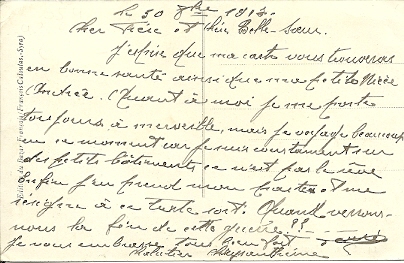 Le 30 8bre 1917.
Cher Frère et chère Belle-sœur.
J'espère que ma carte vous trouveras
en bonne santé ainsi que ma petite Nièce
Andrée. Quant à moi je me porte
toujours à merveille, mais je voyage beaucoup
en ce moment car je suis constament sur
des petits bâtiments ce n'est pas le rêve
enfin j'en prend mon parti et me
résigne à ce triste sort. Quand verrons-
nous la fin de cette guerre ??
Je vous embrasse tous bien fort
Matelot
Edition du Bazar Français François Cabulas - Syra